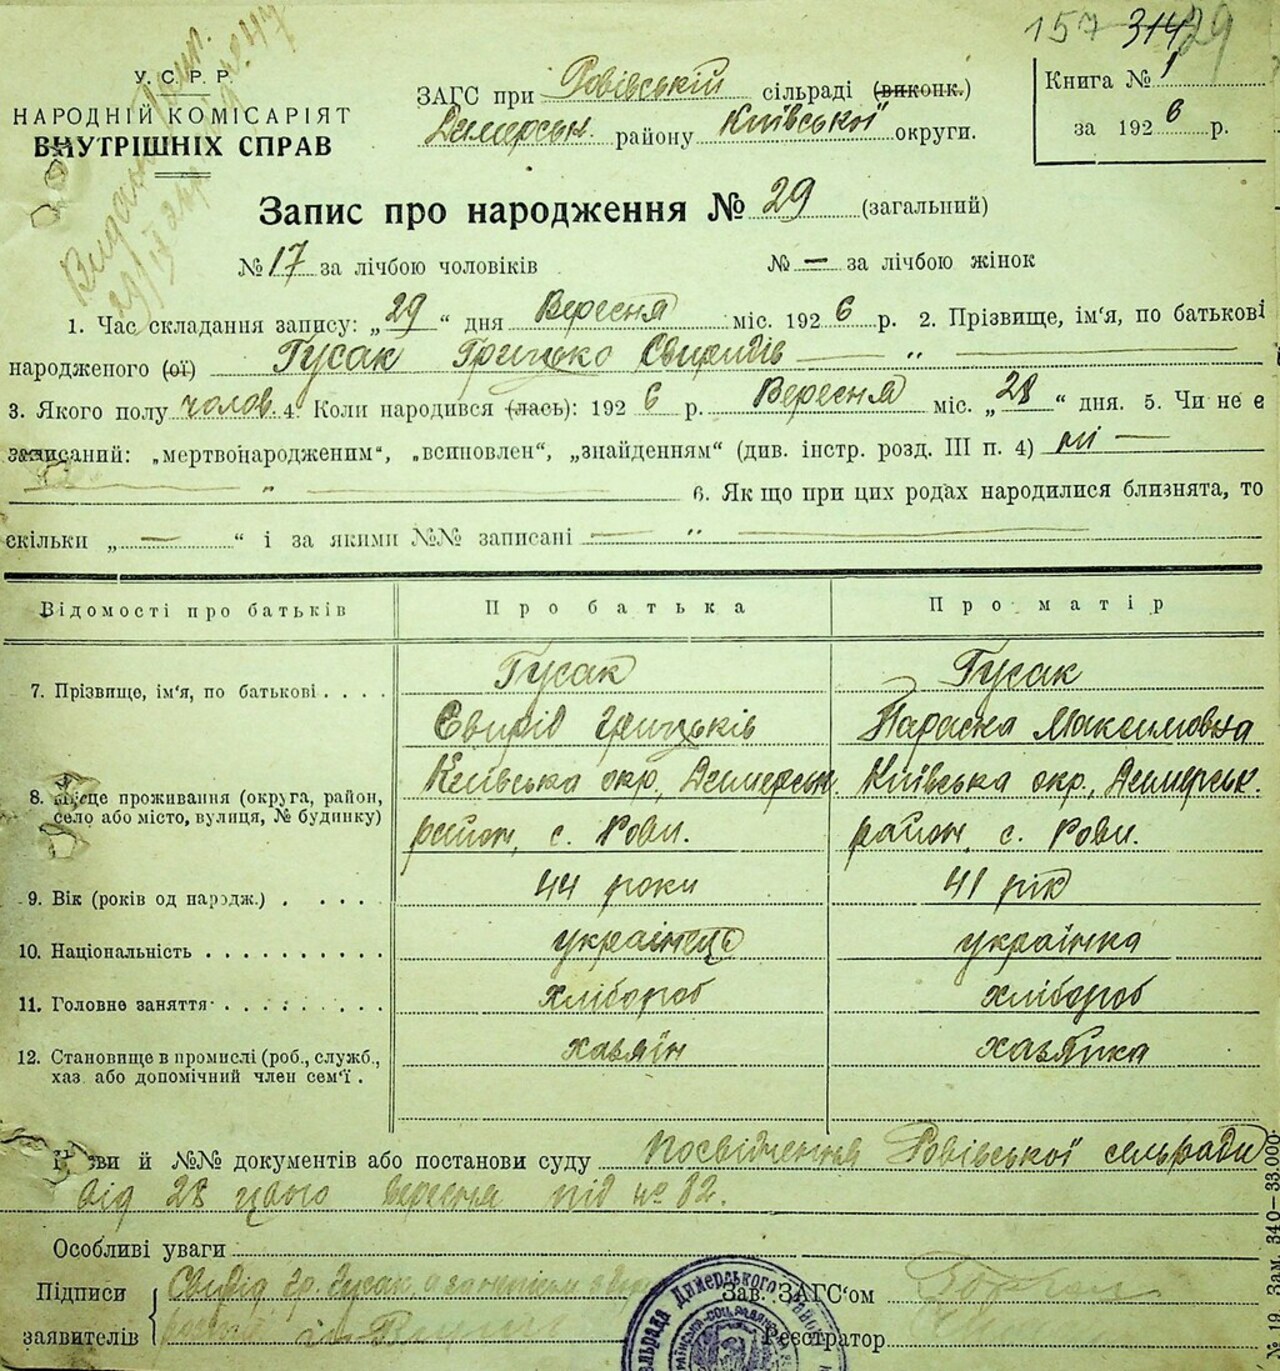 157 314 29
У. С. Р. Р.
НАРОДНІЙ КОМІСАРІЯТ
ВНУТРІШНІХ СПРАВ
ЗАГС при Ровівській сільраді (виконк.)
Димерськ. району Київської округи.
Книга № 1
за 1926 р.
Запис про народження № 29 (загальний)
№ 17 за лічбою чоловіків № — за лічбою жінок
1. Час складання запису: „29“ дня Вересня міс. 1926 р. 2. Прізвище, ім'я, по батькові
народженого (ої) Гусак Грицько Свиридів — „ —
3. Якого полу чолов. 4. Коли народився (лась): 1926 р. Вересня міс. „28“ дня. 5. Чи не є
записаний: „мертвонародженим“, „всиновлен“, „знайденням“ (див. інстр. розд. III п. 4) ні —
— „ — 6. Як що при цих родах народилися близнята, то
скільки „ — “ і за якими №№ записані — „ —
Відомості про батьків Про батька Про матір
7. Прізвище, ім'я, по батькові . . . . Гусак Гусак
Свирід Грицьків Параска Максимовна
8. Місце проживання (округа, район, село або місто, вулиця, № будинку) Київська окр., Димерськ. Київська окр., Димерськ.
район, с. Рови. район, с. Рови.
9. Вік (років од народж.) . . . . . 44 роки 41 рік
10. Національність . . . . . . . . . . українець українка
11. Головне заняття . . . . . . . . . хлібороб хлібороб
12. Становище в промислі (роб., служб., хазяїн хазяйка
хаз або допомічний член сем'ї .
Назви й №№ документів або постанови суду посвідчення Ровівської сельради
від 28 цього вересня під № 82.
Особливі уваги
Підписи Свирід Гр. Гусак, а Зав. ЗАГС'ом
заявителів Реєстратор
Димерського
№ 19 Зам. 340—33.000